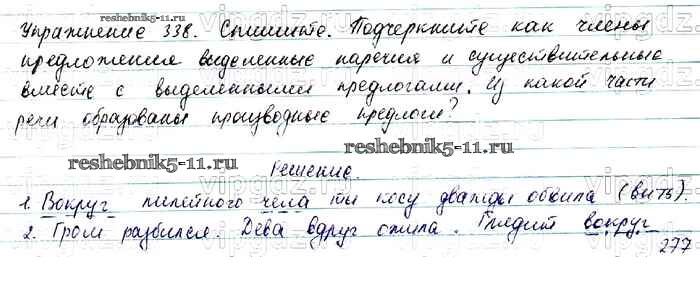 Упражнение 338. Спишите. Подчеркните как члены
reshebnik5-11.ru
предложения выделенные наречия и существительные
вместе с выделенными предлогами. Из какой части
речи образованы производные предлоги?
reshebnik5-11.ru
Решение.
1. Вокруг лилейного чела ты косу дважды обвила (вить).
2. Гром разбился. Дева вдруг ожила. Глядит вокруг
277